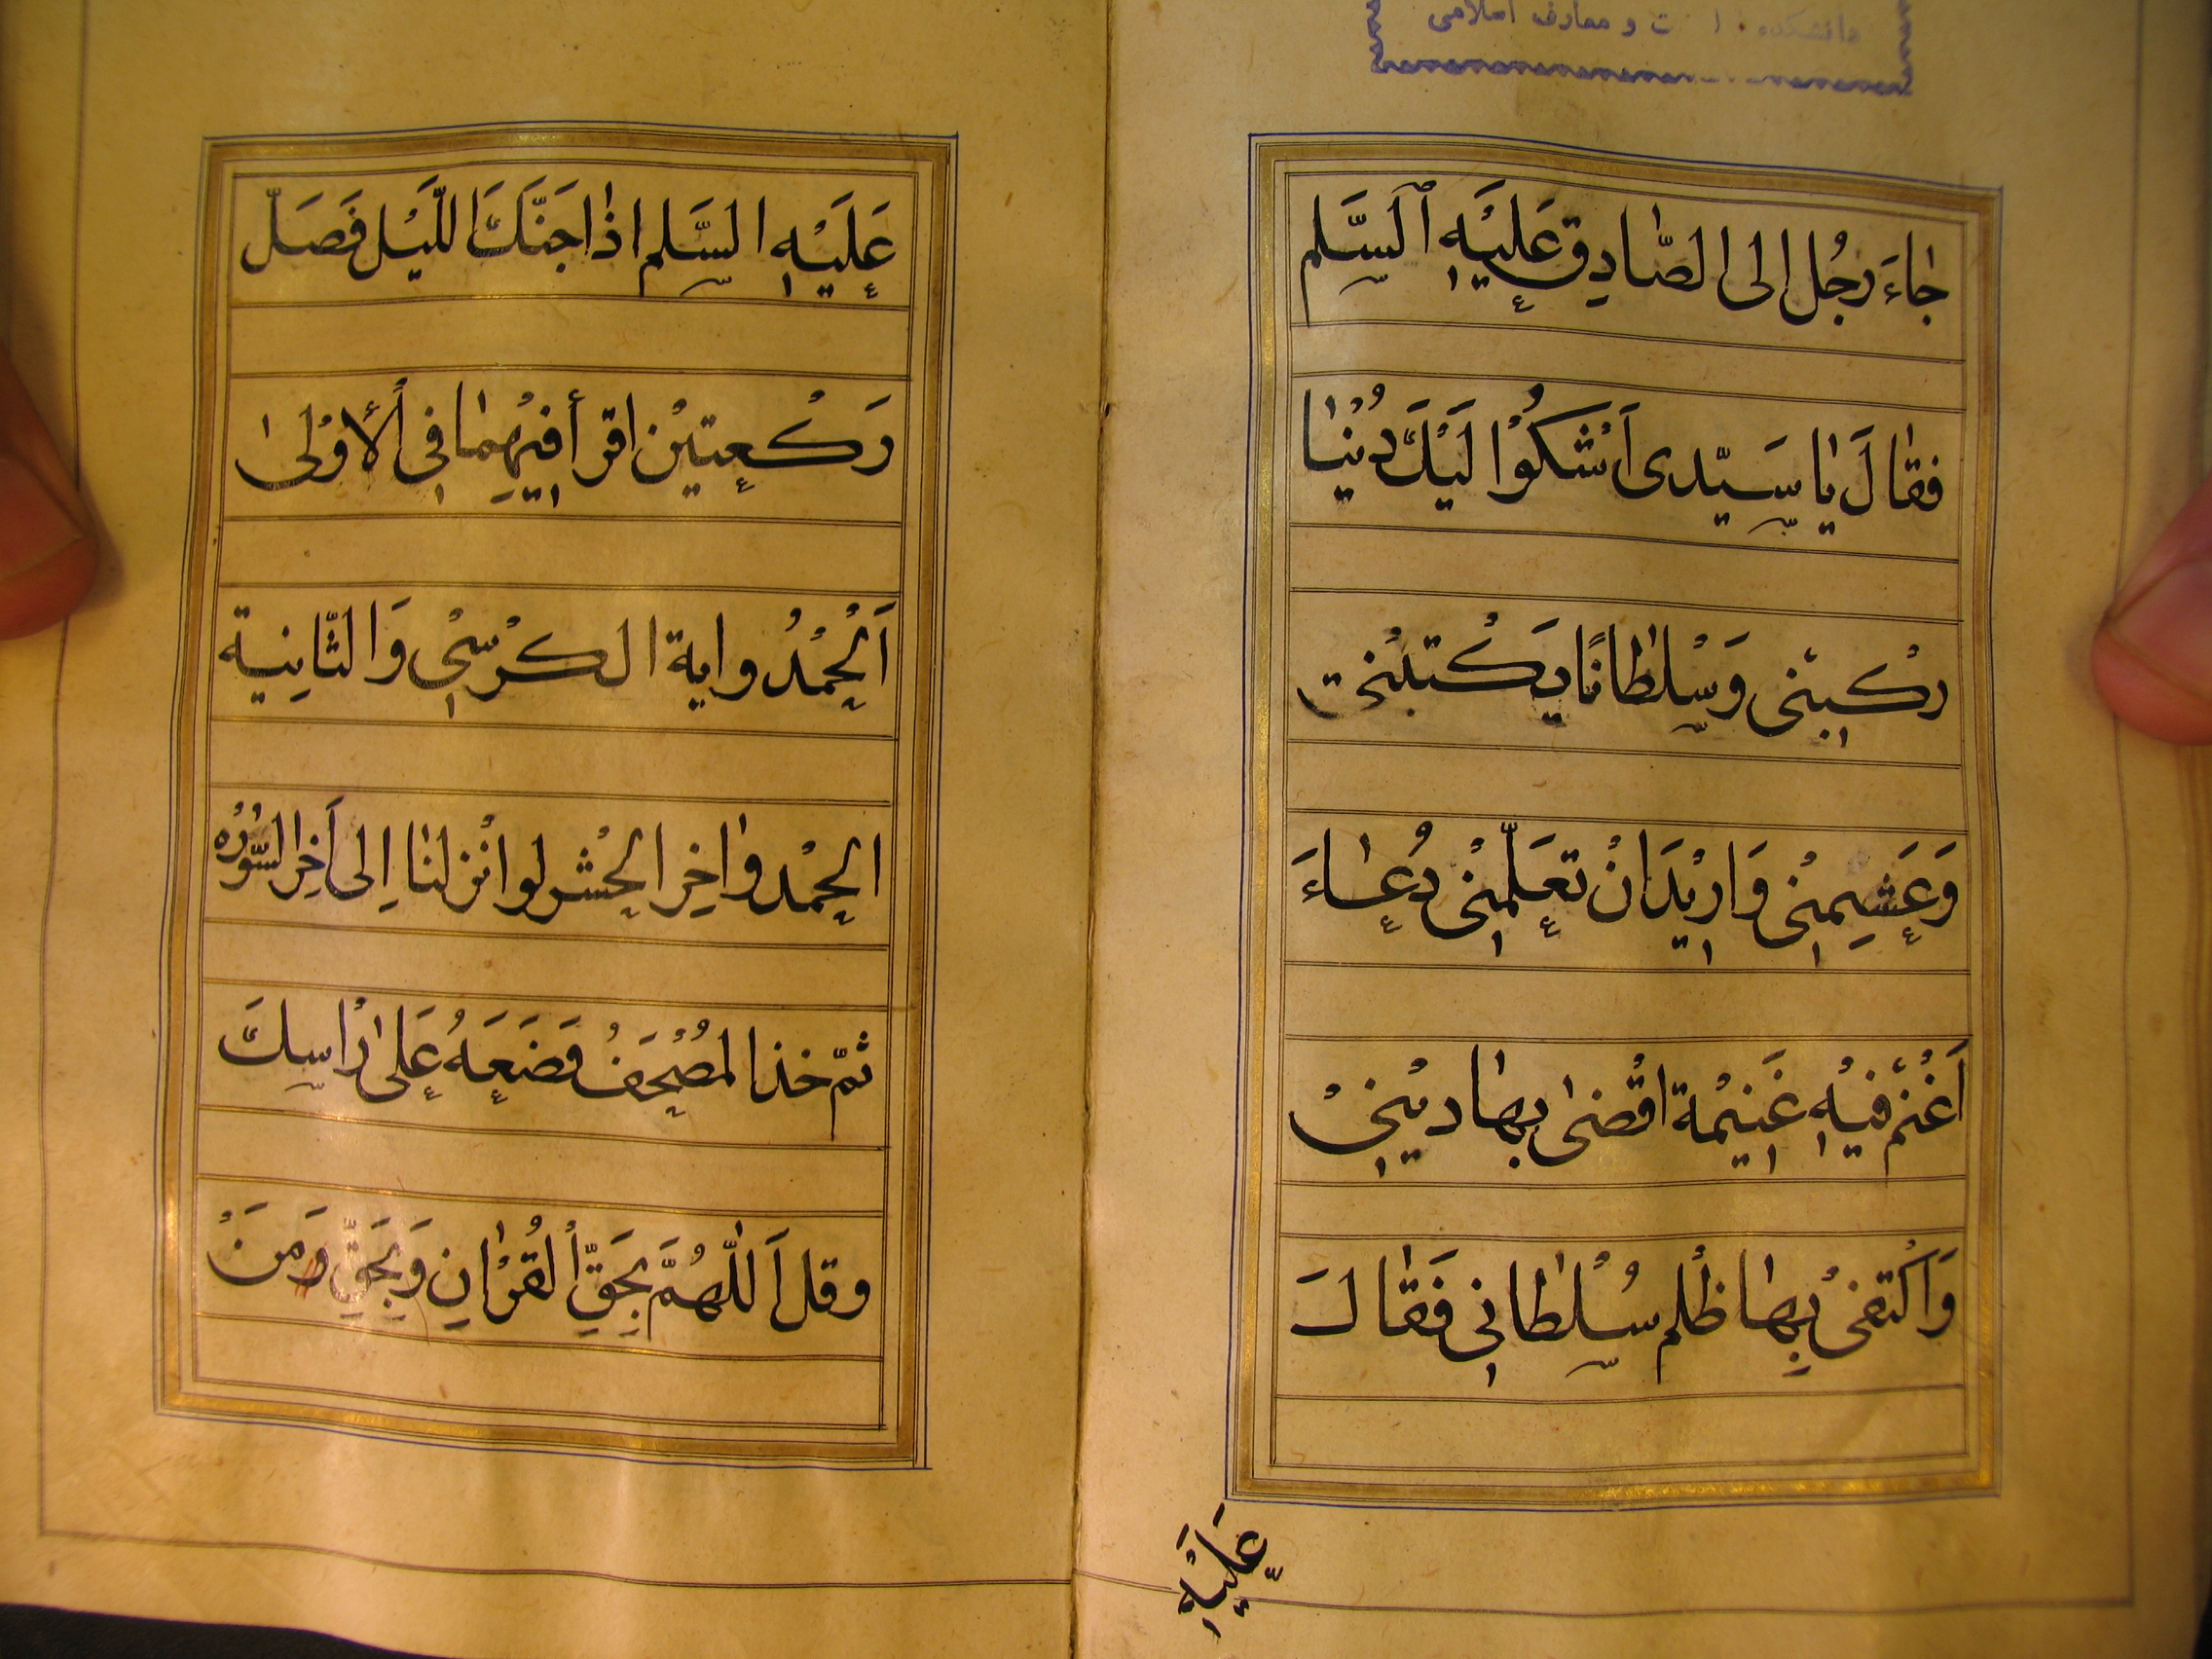 دانشکده ت و معارف اسلامی
جٰاءَ رَجُل اِلى الصّٰادِق عَلَيْهِ ٱلسَّلم
فقٰالَ يٰا سَيّدى اَشْكُوْا لَيْكَ دُيْنٰا
رْكبنى وَسُلْطٰانًا يَكْتبْنى
وَعَشِيمنى وَاريْدَانْ تعَلّمْنى دُعٰاءَ
اَغْنَم فيْهِ غَنيْمة اقْضى بهٰا ديْنىْ
وَاكْتفىْ بِهٰا ظُلم سُلْطٰانى فَقٰالَ
عَلَيْهِ
عَلَيْهِ السَّلم اذٰا جَنَّكَ اللَّيْل فَصَلّ
رَكْعتيْن اقرأ فيْهِمٰا فِى ٱلأوْلىٰ
اَلْحمْدُ واية الكرْسْى وَالثّانِية
الحمْد وٰاخِر الحْشر لوانْزلنٰا اِلى اٰخِر السّوْرُه
ثمّ خذا لمصْحَفُ فَضَعَهُ عَلىٰ رْاسِكَ
وقل اَللّٰهُمَّ بِحَقّ ٱلقُرْاٰنِ وَبِحَقّ وَمَنَ